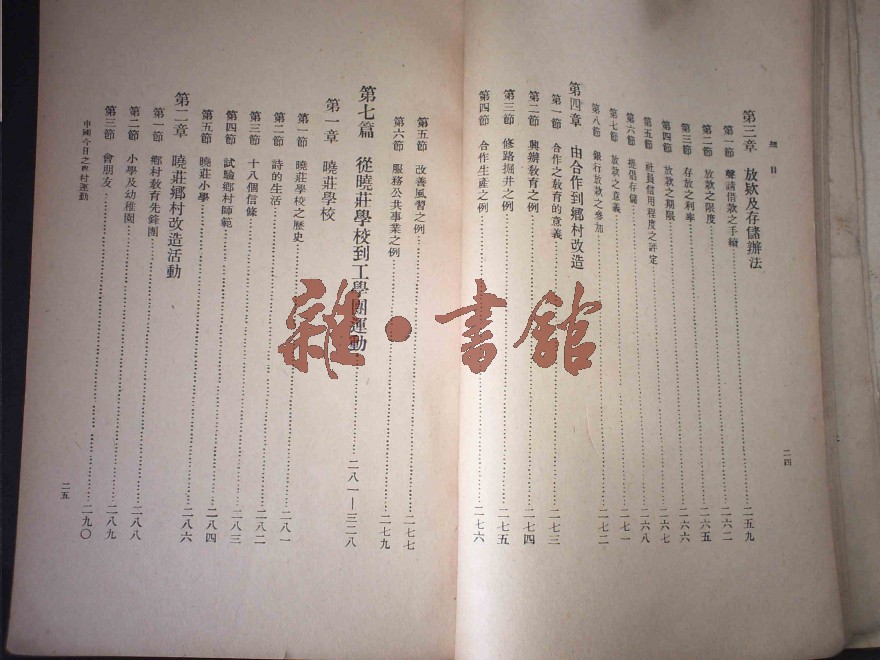 細目
二四
第三章 放欵及存儲辦法
第一節 聲請借款之手續……二五九
第二節 放款之限度……二六二
第三節 存放之利率……二六五
第四節 放款之期限……二六六
第五節 社員信用程度之評定……二六七
第六節 提倡存儲……二六八
第七節 放款之意義……二七一
第八節 銀行放款之參加……二七二
第四章 由合作到鄉村改造
第一節 合作之教育的意義……二七三
第二節 興辦教育之例……二七四
第三節 修路掘井之例……二七五
第四節 合作生產之例……二七六
第五節 改善風習之例……二七七
第六節 服務公共事業之例……二七九
第七篇 從曉莊學校到工學團運動……二八一—三二八
第一章 曉莊學校
第一節 曉莊學校之歷史……二八一
第二節 詩的生活……二八二
第三節 十八個信條……二八三
第四節 試驗鄉村師範……二八四
第五節 曉莊小學……二八六
第二章 曉莊鄉村改造活動
第一節 鄉村教育先鋒團……二八八
第二節 小學及幼稚園……二八九
第三節 會朋友……二九〇
中國今日之農村運動
二五
雜·書館